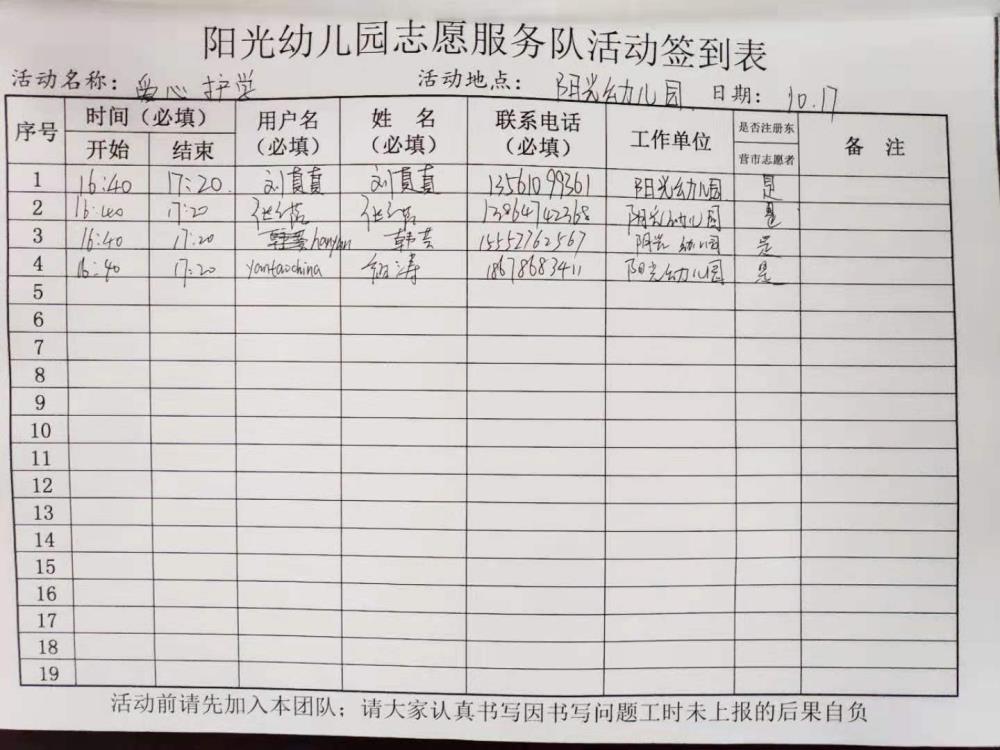 阳光幼儿园志愿服务队活动签到表
活动名称：爱心护学 活动地点：阳光幼儿园 日期：10.17
序号 时间（必填） 用户名（必填） 姓 名（必填） 联系电话（必填） 工作单位 是否注册东营市志愿者 备 注
开始 结束
1 16:40 17:20. 刘真真 刘真真 13561099361 阳光幼儿园 是
2 16:40 17:20 13864742368 阳光幼儿园 是
3 16:40 17:20 韩芸hanyun 韩芸 15552762567 阳光幼儿园 是
4 16:40 17:20 yantaochina 涛 18678683411 阳光幼儿园 是
5
6
7
8
9
10
11
12
13
14
15
16
17
18
19
活动前请先加入本团队；请大家认真书写因书写问题工时未上报的后果自负